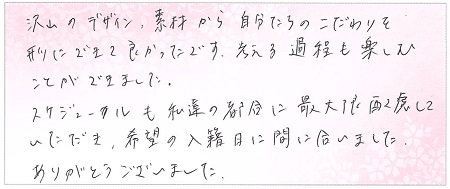 沢山のデザイン、素材から自分たちのこだわりを
形にできて良かったです。考える過程も楽しむ
ことができました。
スケジュールも私達の都合に最大限配慮して
いただき、希望の入籍日に間に合いました。
ありがとうございました。